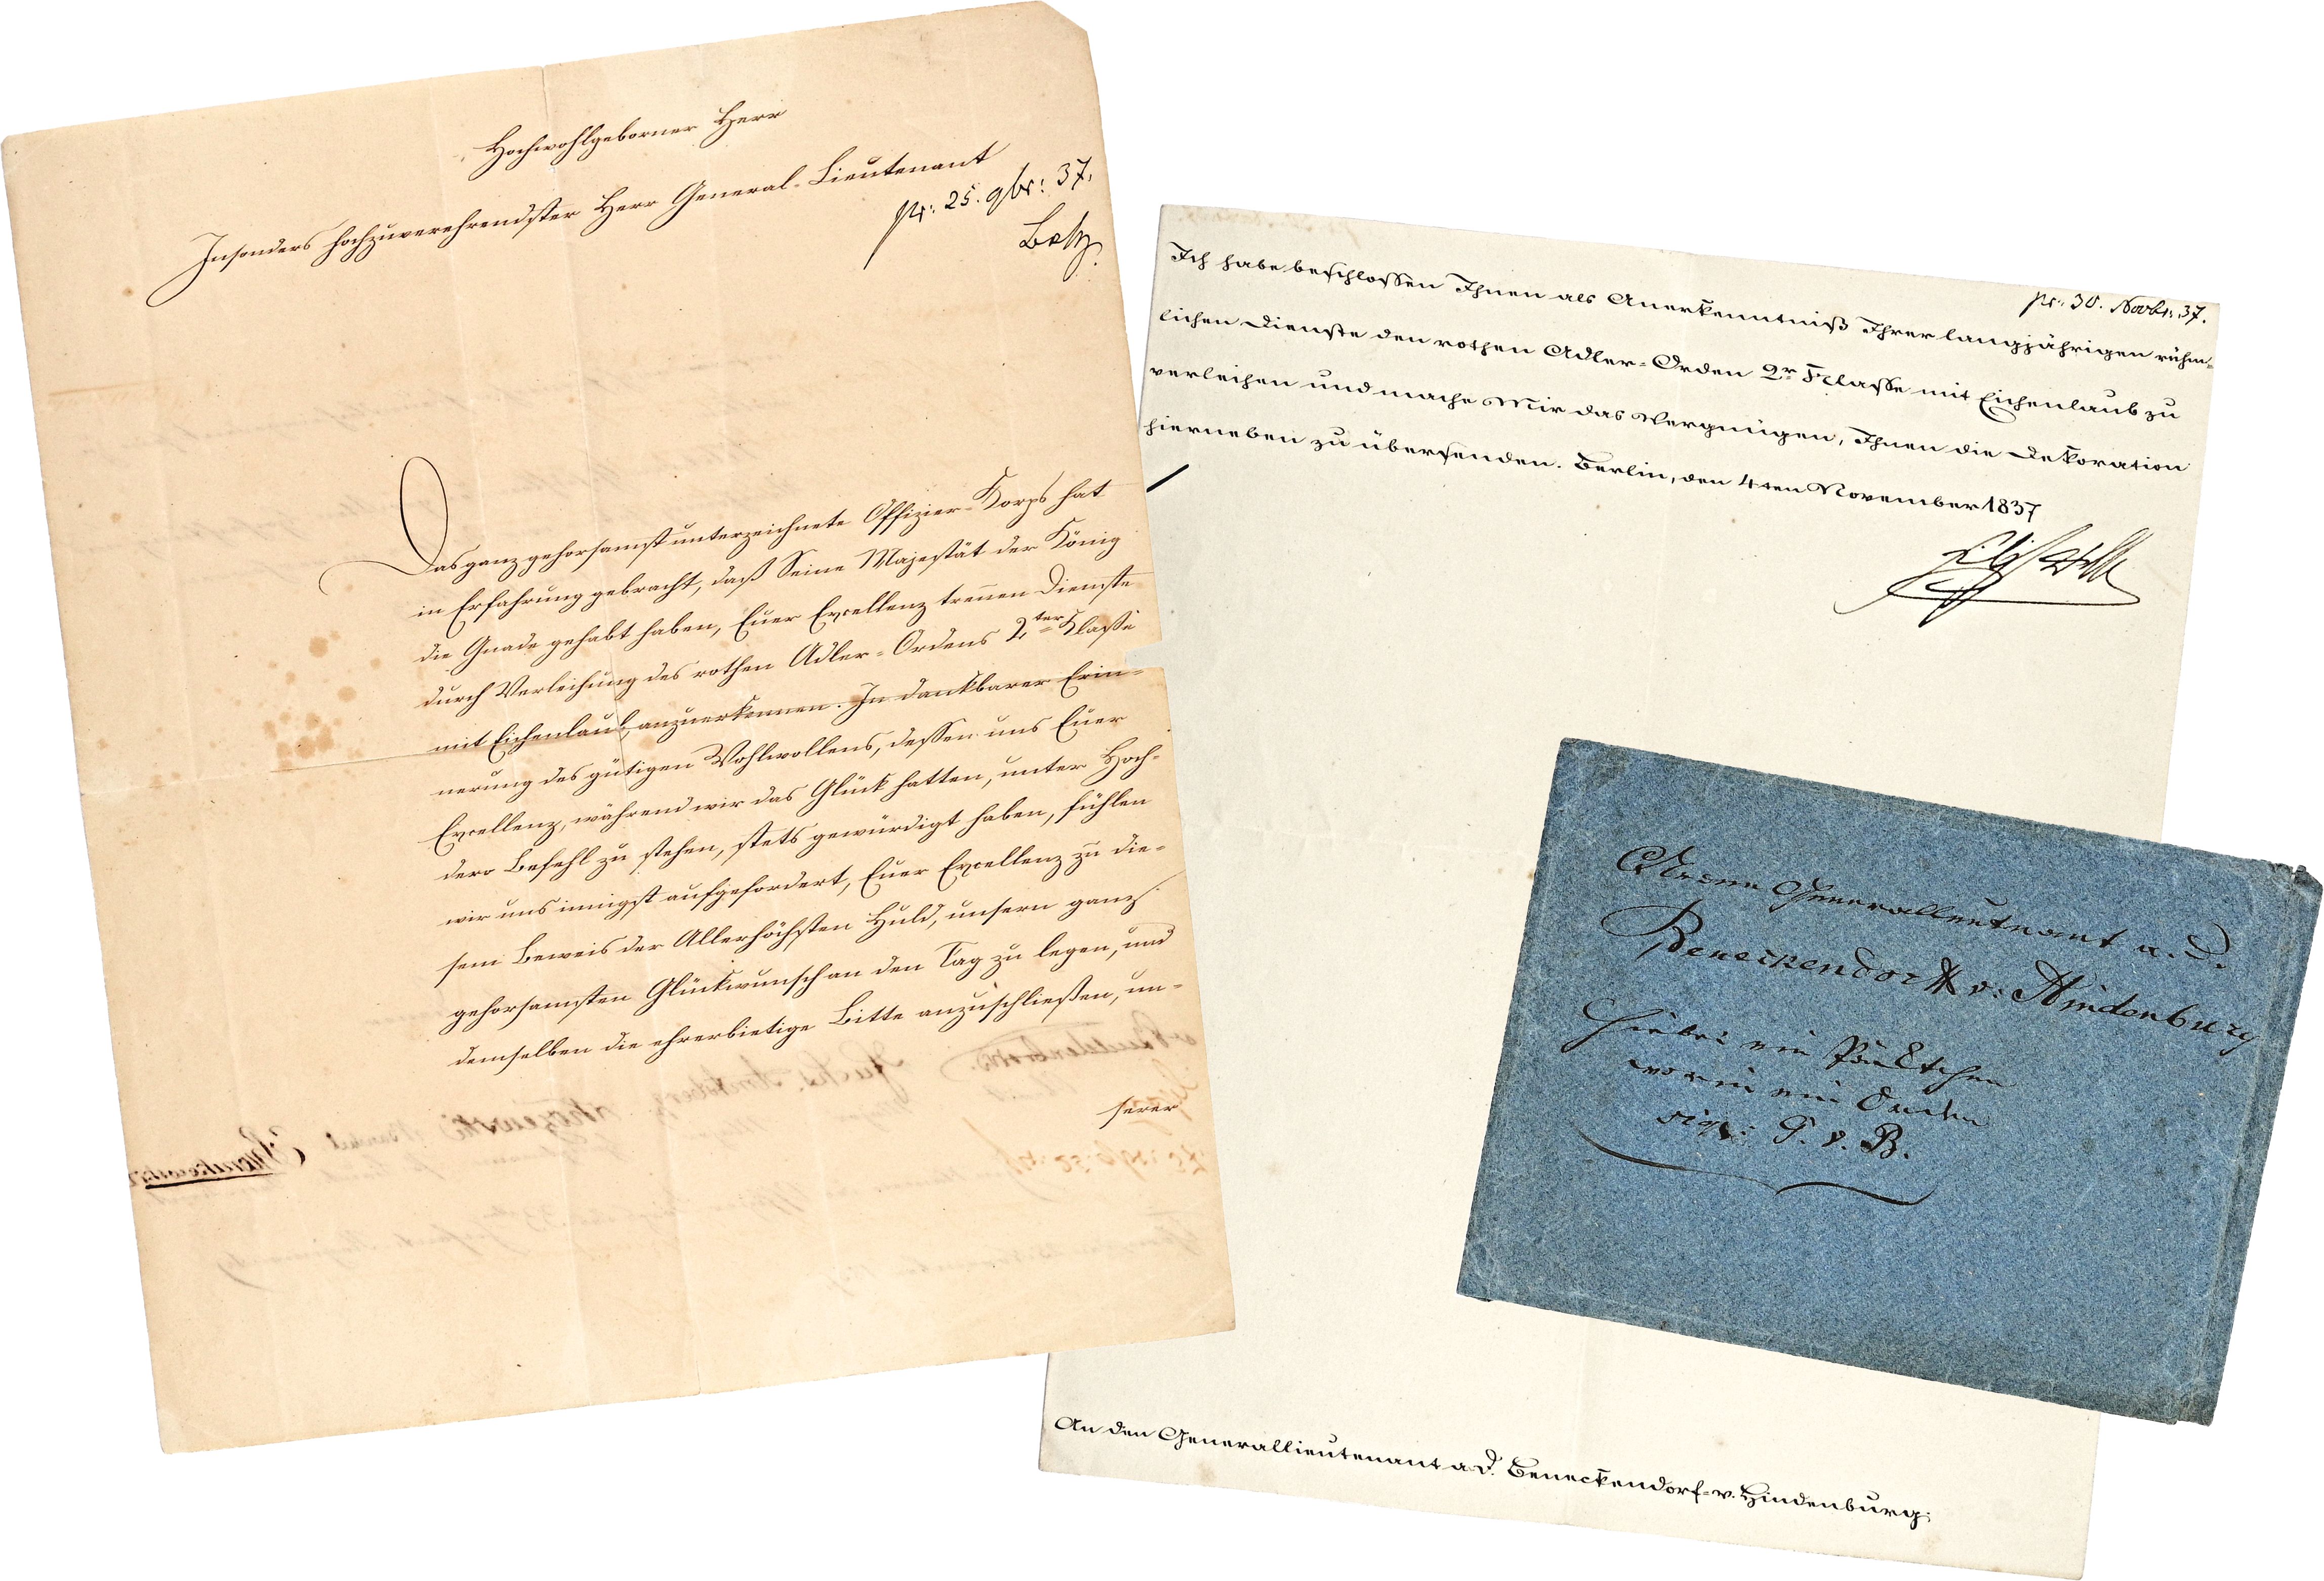 Hochwohlgeborner Herr
Insonders hochzuverehrendster Herr General-Lieutenant
pr: 25. 9br: 37.
Das ganz gehorsamst unterzeichnete Offizier-Korps hat
in Erfahrung gebracht, daß Seine Majestät der König
die Gnade gehabt haben, Euer Excellenz treuen Dienste
durch Verleihung des rothen Adler-Ordens 2ter Klaße
mit Eichenlaub anzuerkennen. In dankbarer Erin-
nerung des gütigen Wohlwollens, dessen uns Euer
Excellenz, während wir das Glück hatten, unter Hoch-
dero Befehl zu stehen, stets gewürdigt haben, fühlen
wir uns innigst aufgefordert, Euer Excellenz zu die-
sem Beweis der Allerhöchsten Huld, unsern ganz
gehorsamsten Glückwunsch an den Tag zu legen, und
demselben die ehrerbietige Bitte anzuschließen, un-
serer
pr: 30. Novbr: 37.
Ich habe beschlossen Ihnen als Anerkenntniß Ihrer langjährigen rühm-
lichen Dienste den rothen Adler-Orden 2r Klasse mit Eichenlaub zu
verleihen und mache Mir das Vergnügen, Ihnen die Dekoration
hierneben zu übersenden. Berlin, den 4ten November 1837
An den Generallieutenant a. D. Beneckendorf-v. Hindenburg.
Generalleutnant a. D.
Beneckendorff v: Hindenburg
Hierbei ein Päcktchen
worin ein Orden
sign: G. v. B.